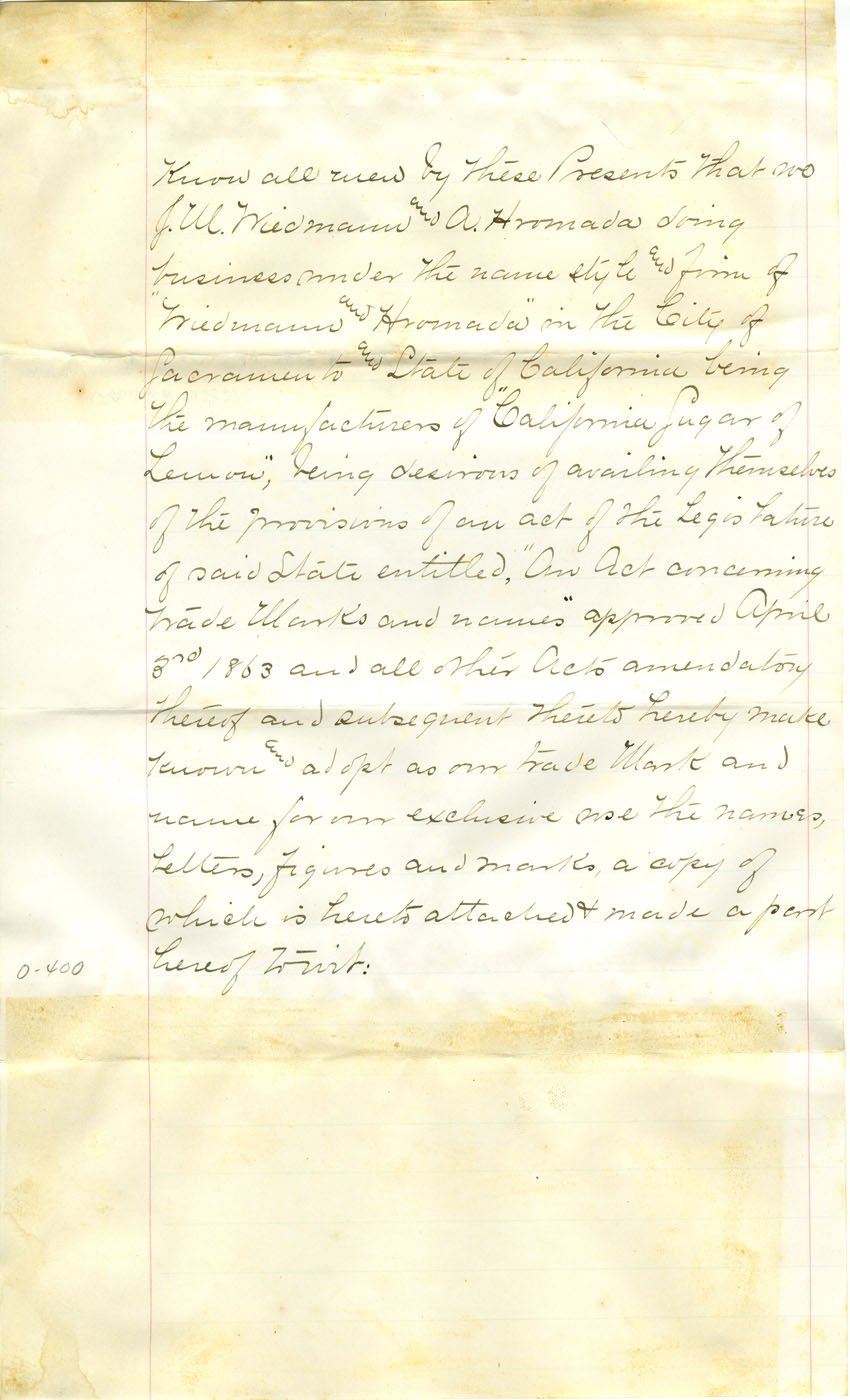 Know all men by these Presents that we
J. M. Wiedmann and A. Hromada doing
business under the name style and firm of
"Wiedmann and Hromada" in the City of
Sacramento and State of California being
the manufacturers of "California Sugar of
Lemon", being desirous of availing themselves
of the provisions of an act of the Legislature
of said State entitled, "An Act concerning
trade Marks and names" approved April
3rd 1863 and all other Acts amendatory
thereof and subsequent thereto hereby make
known and adopt as our trade Mark and
name for our exclusive use the names,
letters, figures and marks, a copy of
which is hereto attached & made a part
hereof towit:
0-400